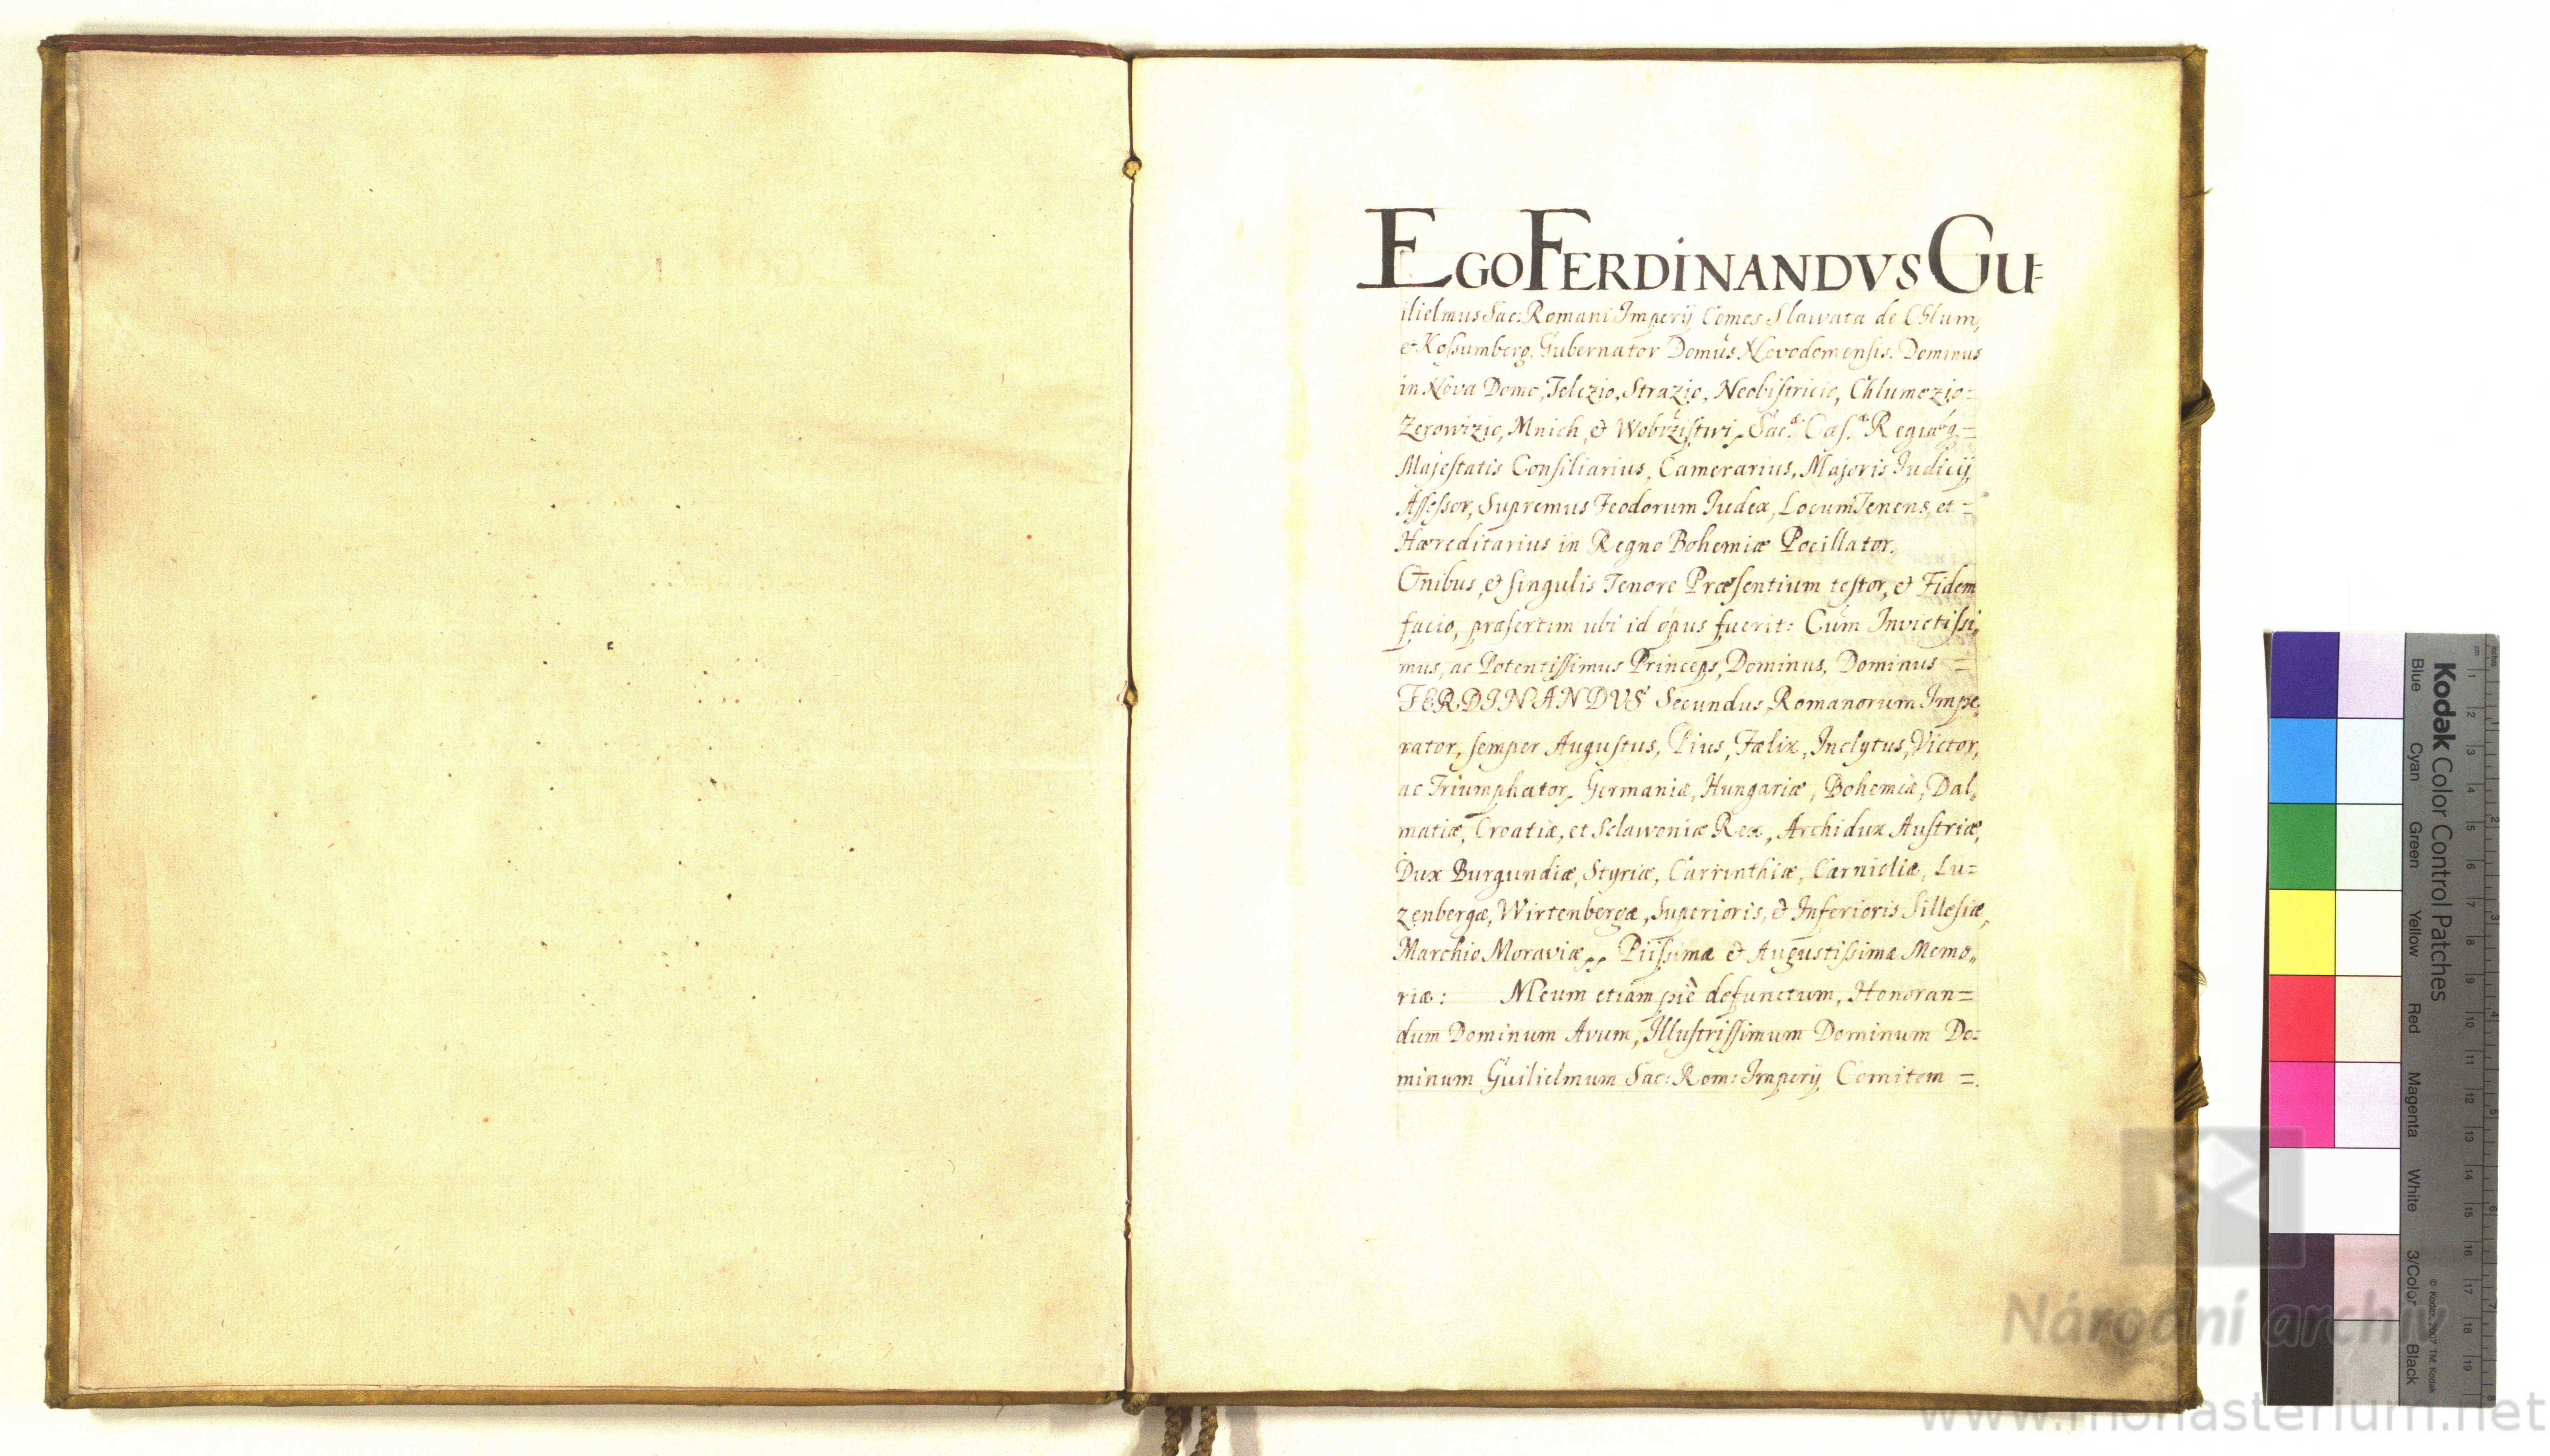 EGO FERDINANDVS GU=
ilielmus Sac: Romani Imperij Comes Slawata de Chlum,
et Kossumberg. Gubernator Domûs Novodomensis. Dominus
in Nova Domo, Telczio, Strazio, Neobistricio, Chlumezio=
Zerowizio, Mnich, & Wobrzistwi, Sac.æ Cæs.æ Regiæq.=
Majestatis Consiliarius, Camerarius, Majoris Iudicij
Assessor, Supremus Feodorum Iudex, LocumTenens, et =
Hæreditarius in Regno Bohemiæ Pocillator.
Oĩnibus, & singulis Tenore Præsentium testor, & Fidem
facio, præsertim ubi id opus fuerit: Cùm Invictissi„
mus, ac Potentissimus Princeps, Dominus, Dominus =
FERDINANDVS Secundus Romanorum Impe„
rator, semper Augustus, Pius, Fælix, Inclytus, Victor,
ac Triumphator, Germaniæ, Hungariæ, Bohemiæ, Dal„
matiæ, Croatiæ, et Sclawoniæ Rex, Archidux Austriæ,
Dux Burgundiæ, Styriæ, Carrinthiæ, Carnioliæ, Lu=
zenbergæ, Wirtenbergæ, Superioris, & Inferioris Sillesiæ,
Marchio Moraviæ,, Piissimæ & Augustissimæ Memo„
riæ: Meum etiam piè defunctum, Honoran=
dum Dominum Avum, Illustrissimum Dominum Do=
minum Guilielmum Sac: Rom: Imperij Comitem =
Kodak Color Control Patches
Blue Cyan Green Yellow Red Magenta White 3/Color Black
Národní archiv
www.monasterium.net